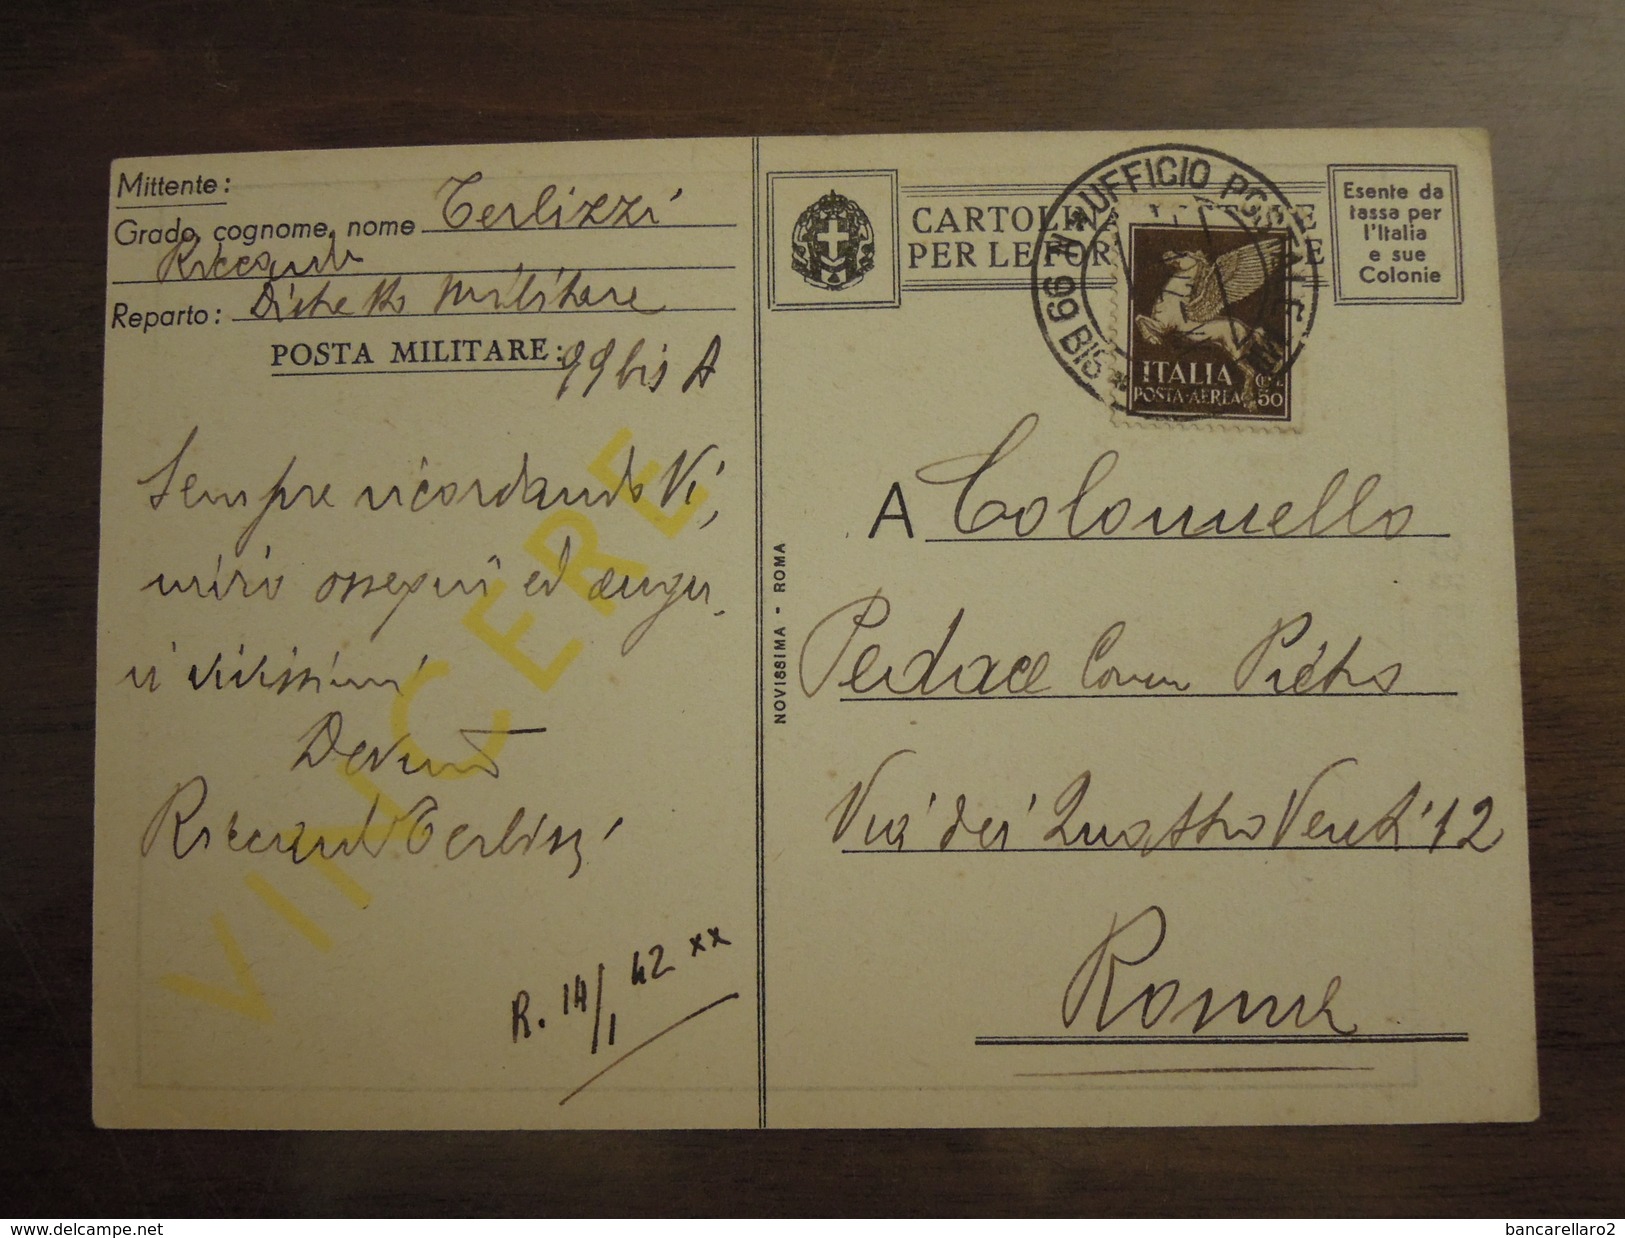 Mittente:
Grado, cognome, nome Terlizzi
Riccardo
Reparto: Distretto Militare
POSTA MILITARE: 99 bis A
Sempre ricordando Vi,
invio ossequi ed augu-
ri vivissimi
Devmo
Riccardo Terlizzi
R. 14/1 42 xx
VINCERE
NOVISSIMA - ROMA
CARTOLINA POSTALE
PER LE FORZE
Esente da
tassa per
l'Italia
e sue
Colonie
UFFICIO POSTALE MILITARE
N. 99 BIS
ITALIA
POSTA-AEREA
CENT.
50
A Colonnello
Pedace Comm Pietro
Via dei Quattro Venti 12
Roma
www.delcampe.net
bancarellaro2